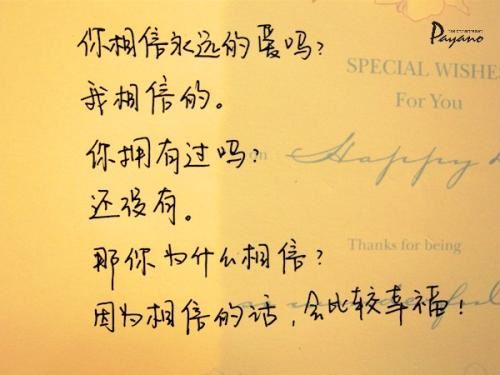 Payano
你相信永远的爱吗？
SPECIAL WISHES
我相信的。
For You
你拥有过吗？
on
Happy
还没有。
那你为什么相信？
Thanks for being
因为相信的话，会比较幸福！